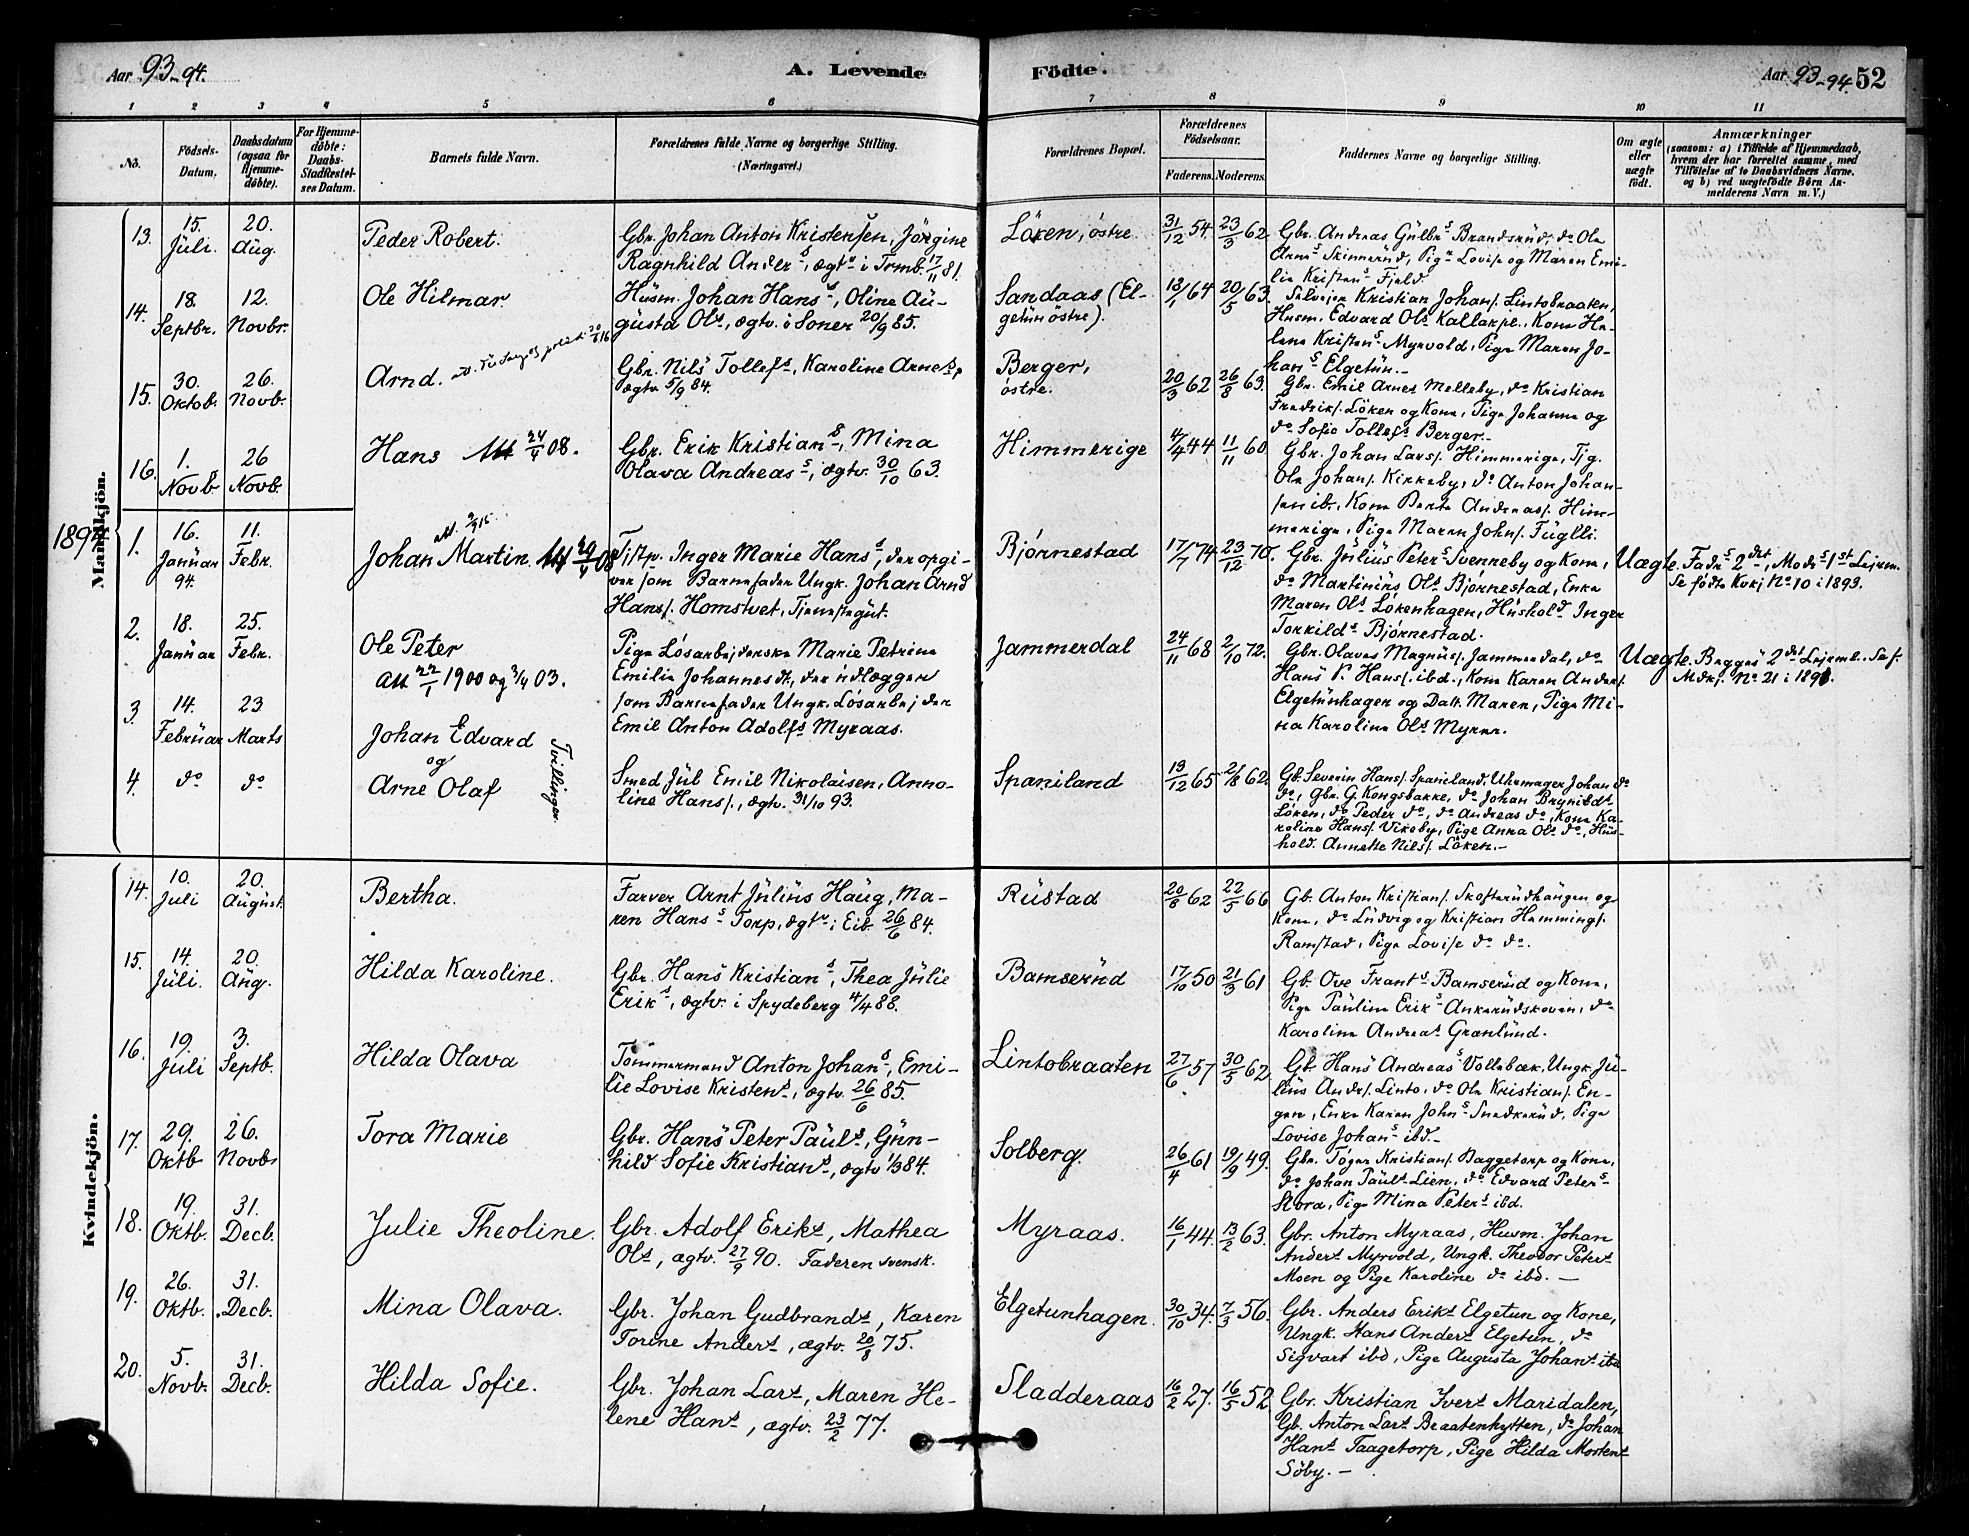 Aar 93-94.
A. Levende Födte.
Aar 93-94. 52
1 2 3 4 5 6 7 8 9 10 11
No.
Födsels-Datum.
Daabsdatum (ogsaa for Hjemme-döbte).
For Hjemme-döbte: Daabs-Stadfæstel-ses Datum.
Barnets fulde Navn.
Forældrenes fulde Navne og borgerlige Stilling. (Næringsvei.)
Forældrenes Bopæl.
Forældrenes Födselsaar.
Faderens. Moderens.
Faddernes Navne og borgerlige Stilling.
Om ægte eller uægte födt.
Anmærkninger
(saasom: a) i Tilfælde af Hjemmedaab,
hvem der har forrettet samme, med
Tilföielse af to Daabsvidners Navne.
og b) ved uægtefödte Börn An-
melderens Navn m. V.)
Mandkjön.
13. 15. Juli. 20. Aug. Peder Robert.
Gbr. Johan Anton Kristensen, Jörgine
Ragnhild Anders, ægtv i Trmb. 17/11 81.
Löken, östre. 31/12 54. 23/3 62.
Gbr. Andreas Gulbrs Brandsrud, do Ole
Arnes Skinnerud, Pige Lovise og Maren Emi-
lie Kristens Fjeld
14. 18. Septbr. 12. Novbr. Ole Hilmar
Husm. Johan Hans, Oline Au-
gusta Ols, ægtv. i Soner 20/9 85.
Sandaas (El-
getun östre). 13/1 64 20/5 63.
Selveier Kristian Johans. Lintobraaten,
Husm. Edvard Ols Kallaxpl., Kone He-
lene Kristens Myrvold, Pige Maren Jo-
hans Elgetun.-
15. 30. Oktob. 26. Novb. Arnd.
Gbr. Nils Tollefs, Karoline Arnes,
ægtv. 5/9 84.
Berger,
östre. 20/3 62 26/8 63.
Gbr. Emil Arnes Melleby, do Kristian
Fredriks. Löken og Kone, Pige Johanne og
do Sofie Tollefs Berger.-
16. 1. Novb. 26 Novb. Hans Att 24/4 08.
Gbr. Erik Kristians, Mina
Olava Andreas, ægtv. 30/10 63.
Himmerige 4/4 44 11/11 60
Gbr. Johan Lars. Himmerige, Tjg.
Ole Johans. Kirkeby, do Anton Johan-
sen ib., Kone Berte Andreas. Him-
merige, Pige Maren Johns. Fuglli.
1894
1. 16. Januar 94. 11. Febr. Johan Martin. Att 29/4 08
Tjstp. Inger Marie Hans, der opgi-
ver som Barnefader Ungk. Johan Arnd
Hans. Homstvet, Tjenestegut.
Bjørnestad 17/7 74 23/12 70.
Gbr. Julius Peters Svenneby og Kone,
do Martinius Ols Bjørnestad, Enke
Maren Ols Lökenhagen, Hushold Inger
Torkilds Bjørnestad.
Uægte. Fadrs 2det, Modrs 1st Leierm.
Se födte Kvkj No 10 i 1893.
2. 18. Januar 25. Febr. Ole Peter
Att 22/1 1900 og 3/4 03.
Pige Lösarbejderske Marie Petrine
Emilie Johannesdt, der udlægger
som Barnefader Ungk. Lösarbejder
Emil Anton Adolfs Myraas.
Jammerdal 24/11 68 2/10 72.
Gbr. Olavus Magnus. Jammerdal, do
Hans P. Hans. ibd., Kone Karen Anders.
Elgetunhagen og Datt. Maren, Pige Mi-
na Karoline Ols Myrer.
Uægte. Begges 2det Leierm. Se f.
Mdkj. No 21 i 1891.
3. 14. Februar 23 Marts Johan Edvard
og
4. do do Arne Olaf
Tvillinger.
Smed Jul Emil Nikolaisen, Anno-
line Hans., ægtv. 31/10 93.
Spaniland 13/12 65 2/8 62.
Gb. Severin Hans. Spaniland, Uhrmager Johan do
do, Gbr. G. Kongsbakke, do Johan Brynildt
Löken, do Peder do, do Andreas do, Kone Ka-
roline Hans. Vikeby, Pige Anna Ols do, Hus-
hold. Annette Nils. Löken.-
Kvindekjön.
14. 10. Juli 20. August. Bertha.
Farver Arnt Julius Haug, Ma-
ren Hans Torp, ægtv i Eib. 26/6 84.
Rustad 20/8 62 22/5 66
Gb. Anton Kristians. Skofterudhaugen og
Kone, do Ludvig og Kristian Hemmings.
Ramstad, Pige Lovise do do.
15. 14. Juli. 20. Aug. Hilda Karoline.
Gbr. Hans Kristians, Thea Julie
Eriks, ægtv. i Spydeberg 4/4 88.
Bamserud 17/10 50 21/3 61
Gb. Ove Frants Bamserud og Kone,
Pige Pauline Eriks Ankerudskoven, do
Karoline Andreas Grønlund.
16. 19. Juli 3. Septb. Hilda Olava
Tömmermand Anton Johans, Emi-
lie Lovise Kristens, ægtv. 26/6 85.
Lintobraaten 27/6 57 30/5 62
Gb. Hans Andreas Vollebæk, Ungk. Ju-
lius Anders. Linto, do Ole Kristians. En-
gen, Enke Karen Johns Snekkerud, Pige
Lovise Johans ibd.-
17. 29. Oktb. 26. Novb. Tora Marie
Gbr. Hans Peter Pauls, Gun-
hild Sofie Kristians, ægtv 1/3 84.
Solberg. 26/4 61 19/9 49.
Gbr. Töger Kristians. Baggetorp og Kone,
do Johan Pauls Lien, do Edvard Peters
Stora, Pige Mina Peters ibd.
18. 19. Oktb. 31. Decb. Julie Theoline.
Gbr. Adolf Eriks, Mathea
Ols, ægtv. 27/9 90. Faderen svensk.
Myraas. 16/1 44. 13/2 63.
Gbr. Anton Myraas, Husm. Johan
Anders Myrvold, Ungk. Theodor Peters
Moen og Pige Karoline do ibd.—
19. 26. Oktb. 31. Decb. Mina Olava.
Gbr. Johan Gudbrands, Karen
Torine Anders, ægtv. 20/8 75.
Elgetunhagen. 30/10 34. 7/3 56.
Gbr. Anders Eriks Elgetun og Kone,
Ungk. Hans Anders Elgetun, do
Sigvart ibd, Pige Augusta Johans ibd
20. 5. Novb. 31. Decb. Hilda Sofie.
Gbr. Johan Lars, Maren He-
lene Hans, ægtv. 23/2 77.
Sladderaas 16/2 27. 16/5 52
Gbr. Kristian Ivers Maridalen,
Gb. Anton Lars Braatenhytten, do Johan
Hans Taagetorp, Pige Hilda Mortens
Söby.—